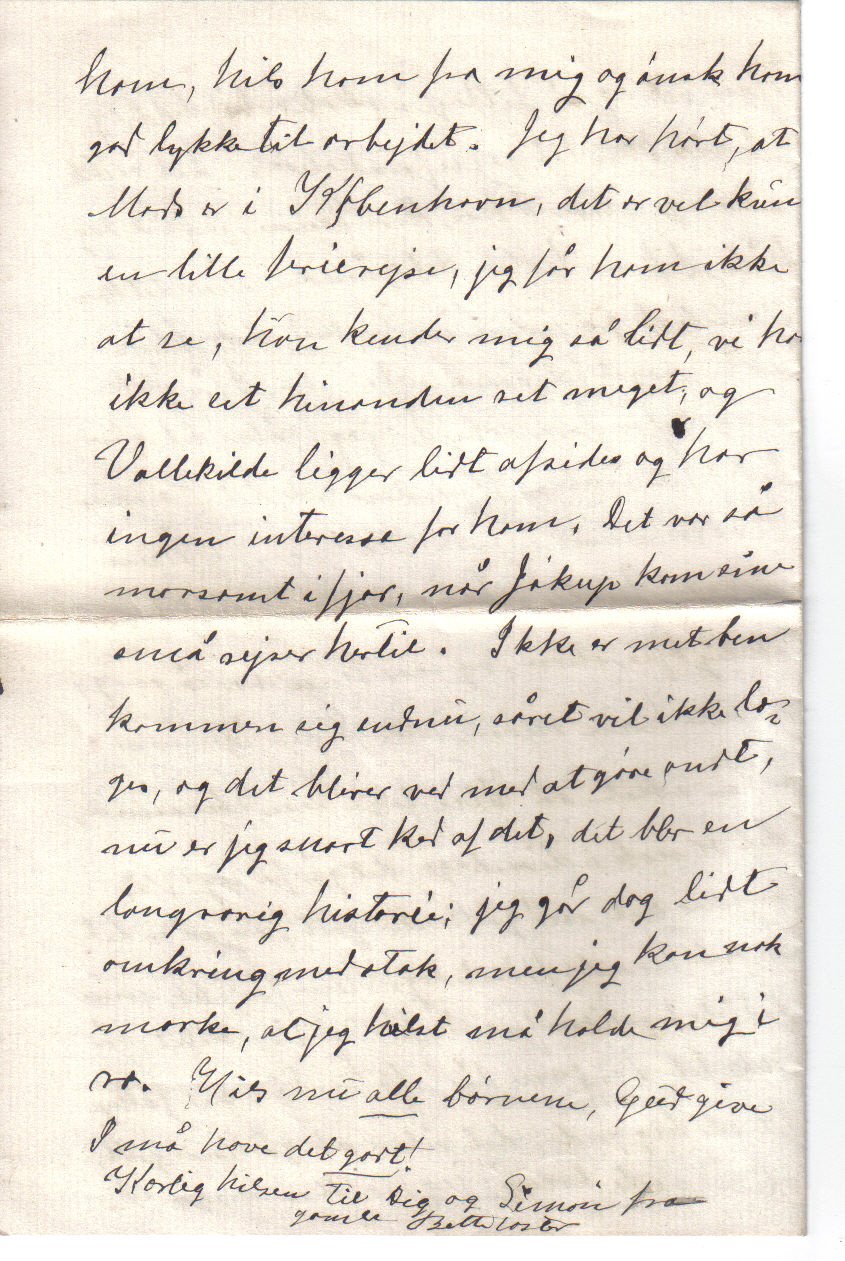 ham, hils ham fra mig og ønsk ham
god lykke til arbejdet. Jeg har hørt, at
Mads er i København, det er vel kun
en lille ferierejse, jeg får ham ikke
at se, han kender mig så lidt, vi ha
ikke set hinanden ret meget, og
Vallekilde ligger lidt afsides og har
ingen interesse for ham. Det var så
morsomt i fjor, når Jákup kom sine
små rejser hertil. Ikke er mit ben
kommen sig endnu, såret vil ikke læ-
ges, og det bliver ved med at gøre ondt,
nu er jeg snart ked af det, det blev en
langvarig historie; jeg går dog lidt
omkring med stok, men jeg kan nok
mærke, at jeg helst må holde mig i
ro. Hils nu alle børnene, Gud give
I må have det godt!
Kærlig hilsen til Dig og Simon fra
gamle